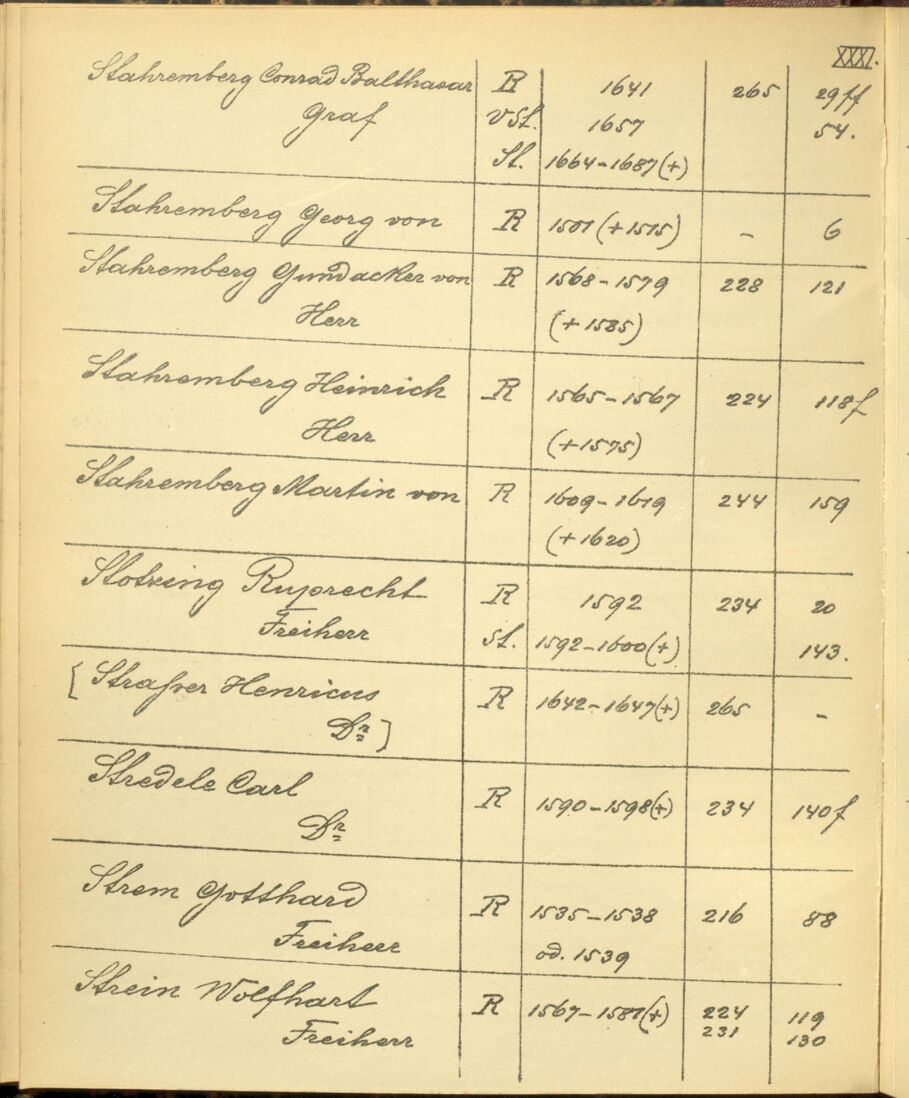 XXXI.
Stahremberg Conrad Balthasar R 1641 265 29ff
Graf VSt. 1657 54.
St. 1664-1687(+)
Stahremberg Georg von R 1501 (+1515) - 6
Stahremberg Gundacker von R 1568-1579 228 121
Herr (+1585)
Stahremberg Heinrich R 1565-1567 224 118f
Herr (+1575)
Stahremberg Martin von R 1609-1619 244 159
(+1620)
Stotzing Ruprecht R 1592 234 20
Freiherr St. 1592-1600(+) 143.
[Straßer Henricus R 1642-1647(+) 265 -
Dr]
Stredele Carl R 1590-1598(+) 234 140f
Dr
Strem Gotthard R 1535-1538 216 88
Freiherr od. 1539
Strein Wolfhart R 1567-1587(+) 224 119
Freiherr 231 130